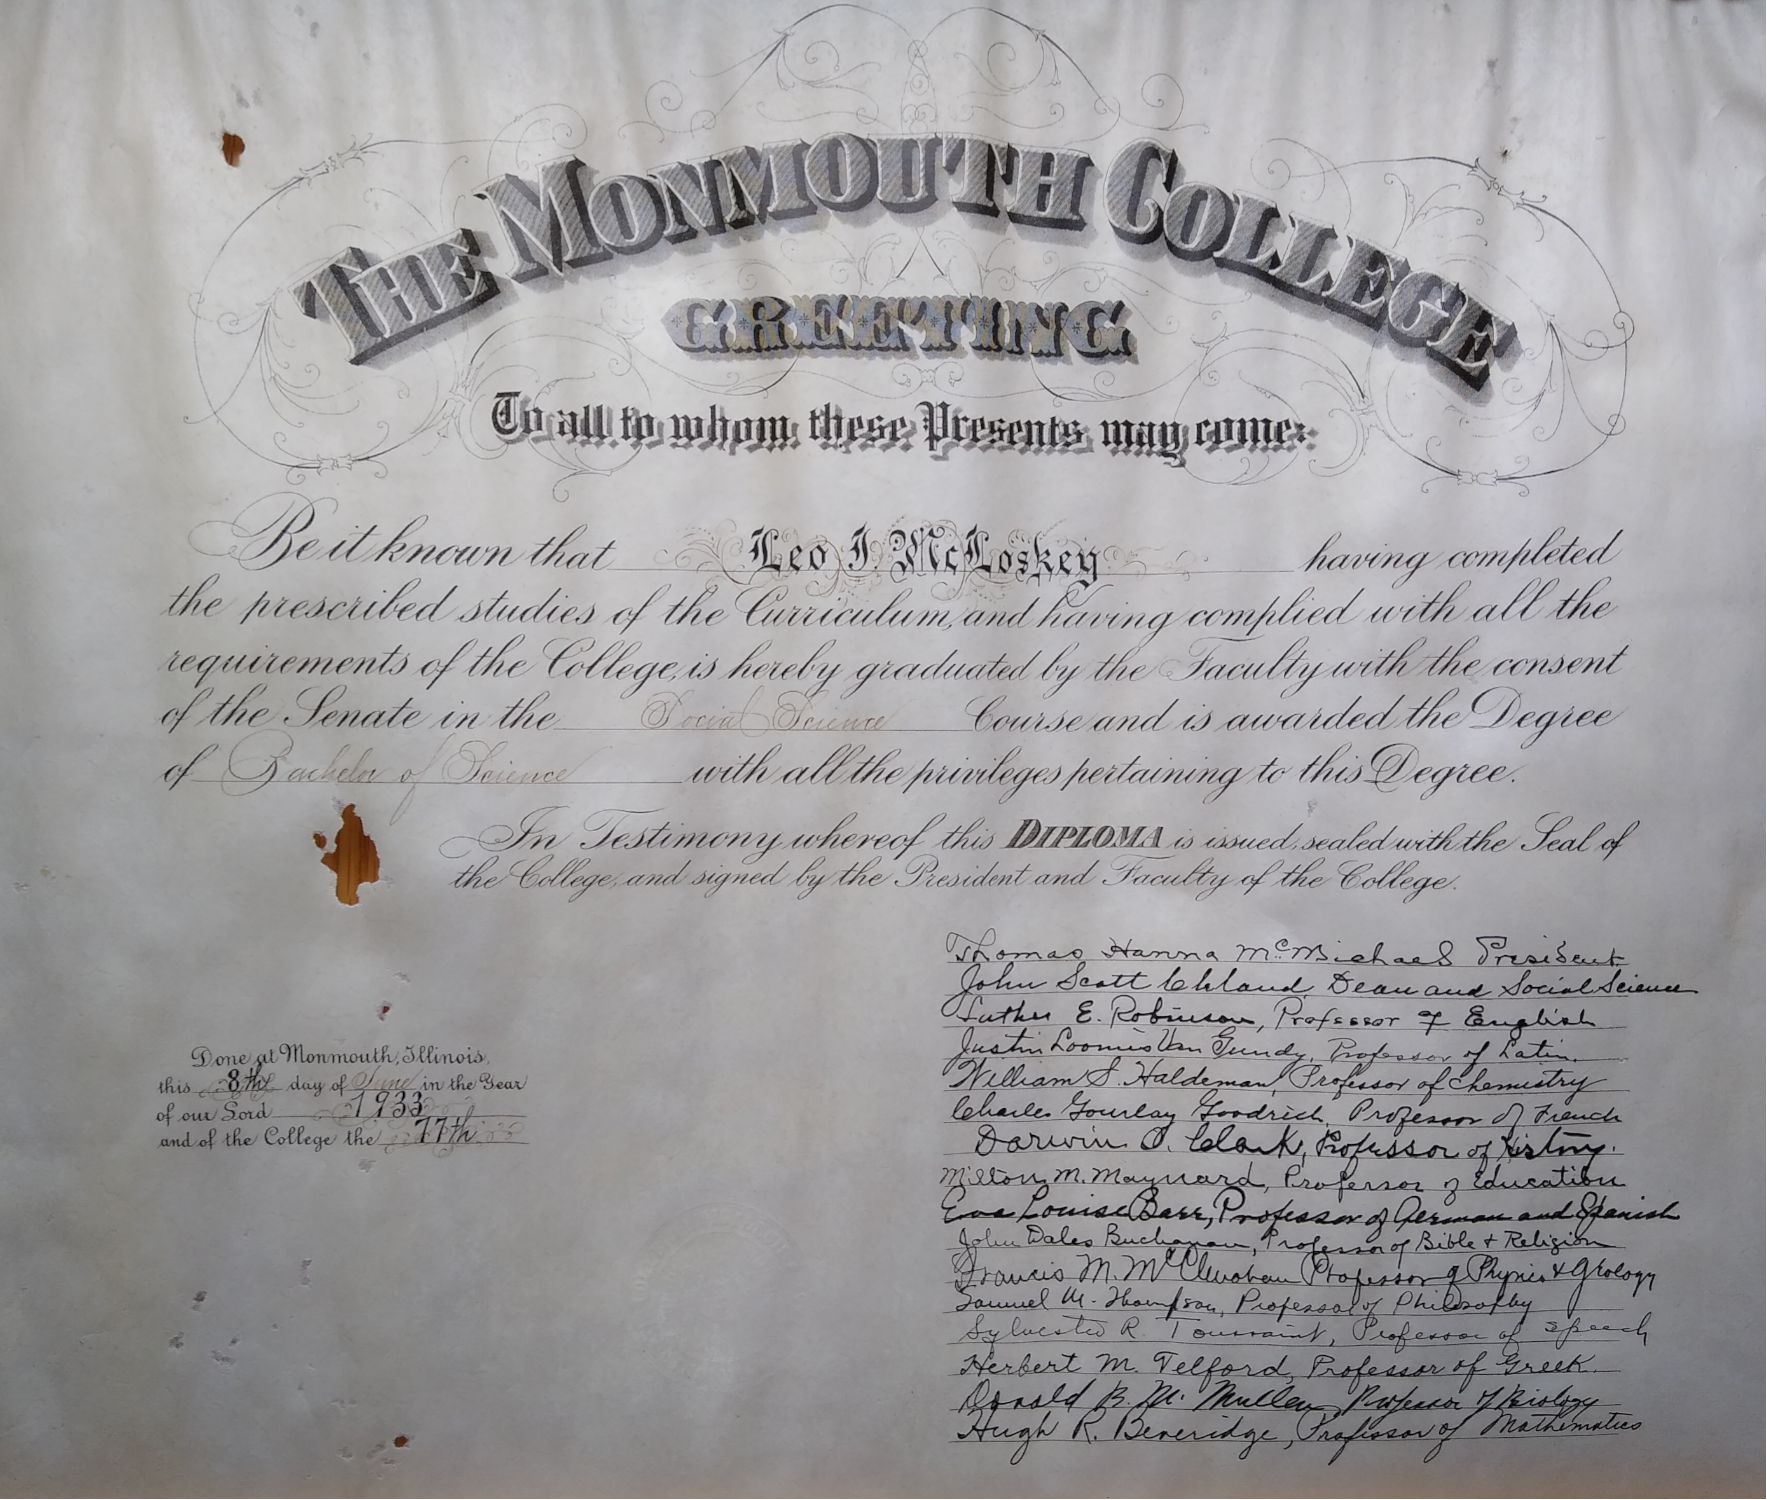 THE MONMOUTH COLLEGE
GREETING
To all to whom these Presents may come:
Be it known that Leo J. McLoskey having completed
the prescribed studies of the Curriculum, and having complied with all the
requirements of the College, is hereby graduated by the Faculty with the consent
of the Senate in the Social Science Course and is awarded the Degree
of Bachelor of Science with all the privileges pertaining to this Degree.
In Testimony whereof this DIPLOMA is issued, sealed with the Seal of
the College, and signed by the President and Faculty of the College.
Done at Monmouth, Illinois,
this 8th day of June in the Year
of our Lord 1933
and of the College the 77th
Thomas Hanna McMichael President
John Scott Cleland Dean and Social Science
Luther E. Robinson, Professor of English
Justin Loomis Van Gundy, Professor of Latin.
William S. Haldeman, Professor of Chemistry
Charles Gourlay Goodrich, Professor of French
Darwin O. Clark, Professor of History.
Milton M. Maynard, Professor of Education
Eva Louise Barr, Professor of German and Spanish
John Dales Buchanan, Professor of Bible & Religion
Francis M. McClenahan Professor of Physics & Geology
Samuel M. Thompson, Professor of Philosophy
Sylvester R. Toussaint, Professor of Speech
Herbert M. Telford, Professor of Greek.
Donald B. McMullen Professor of Biology
Hugh R. Beveridge, Professor of Mathematics